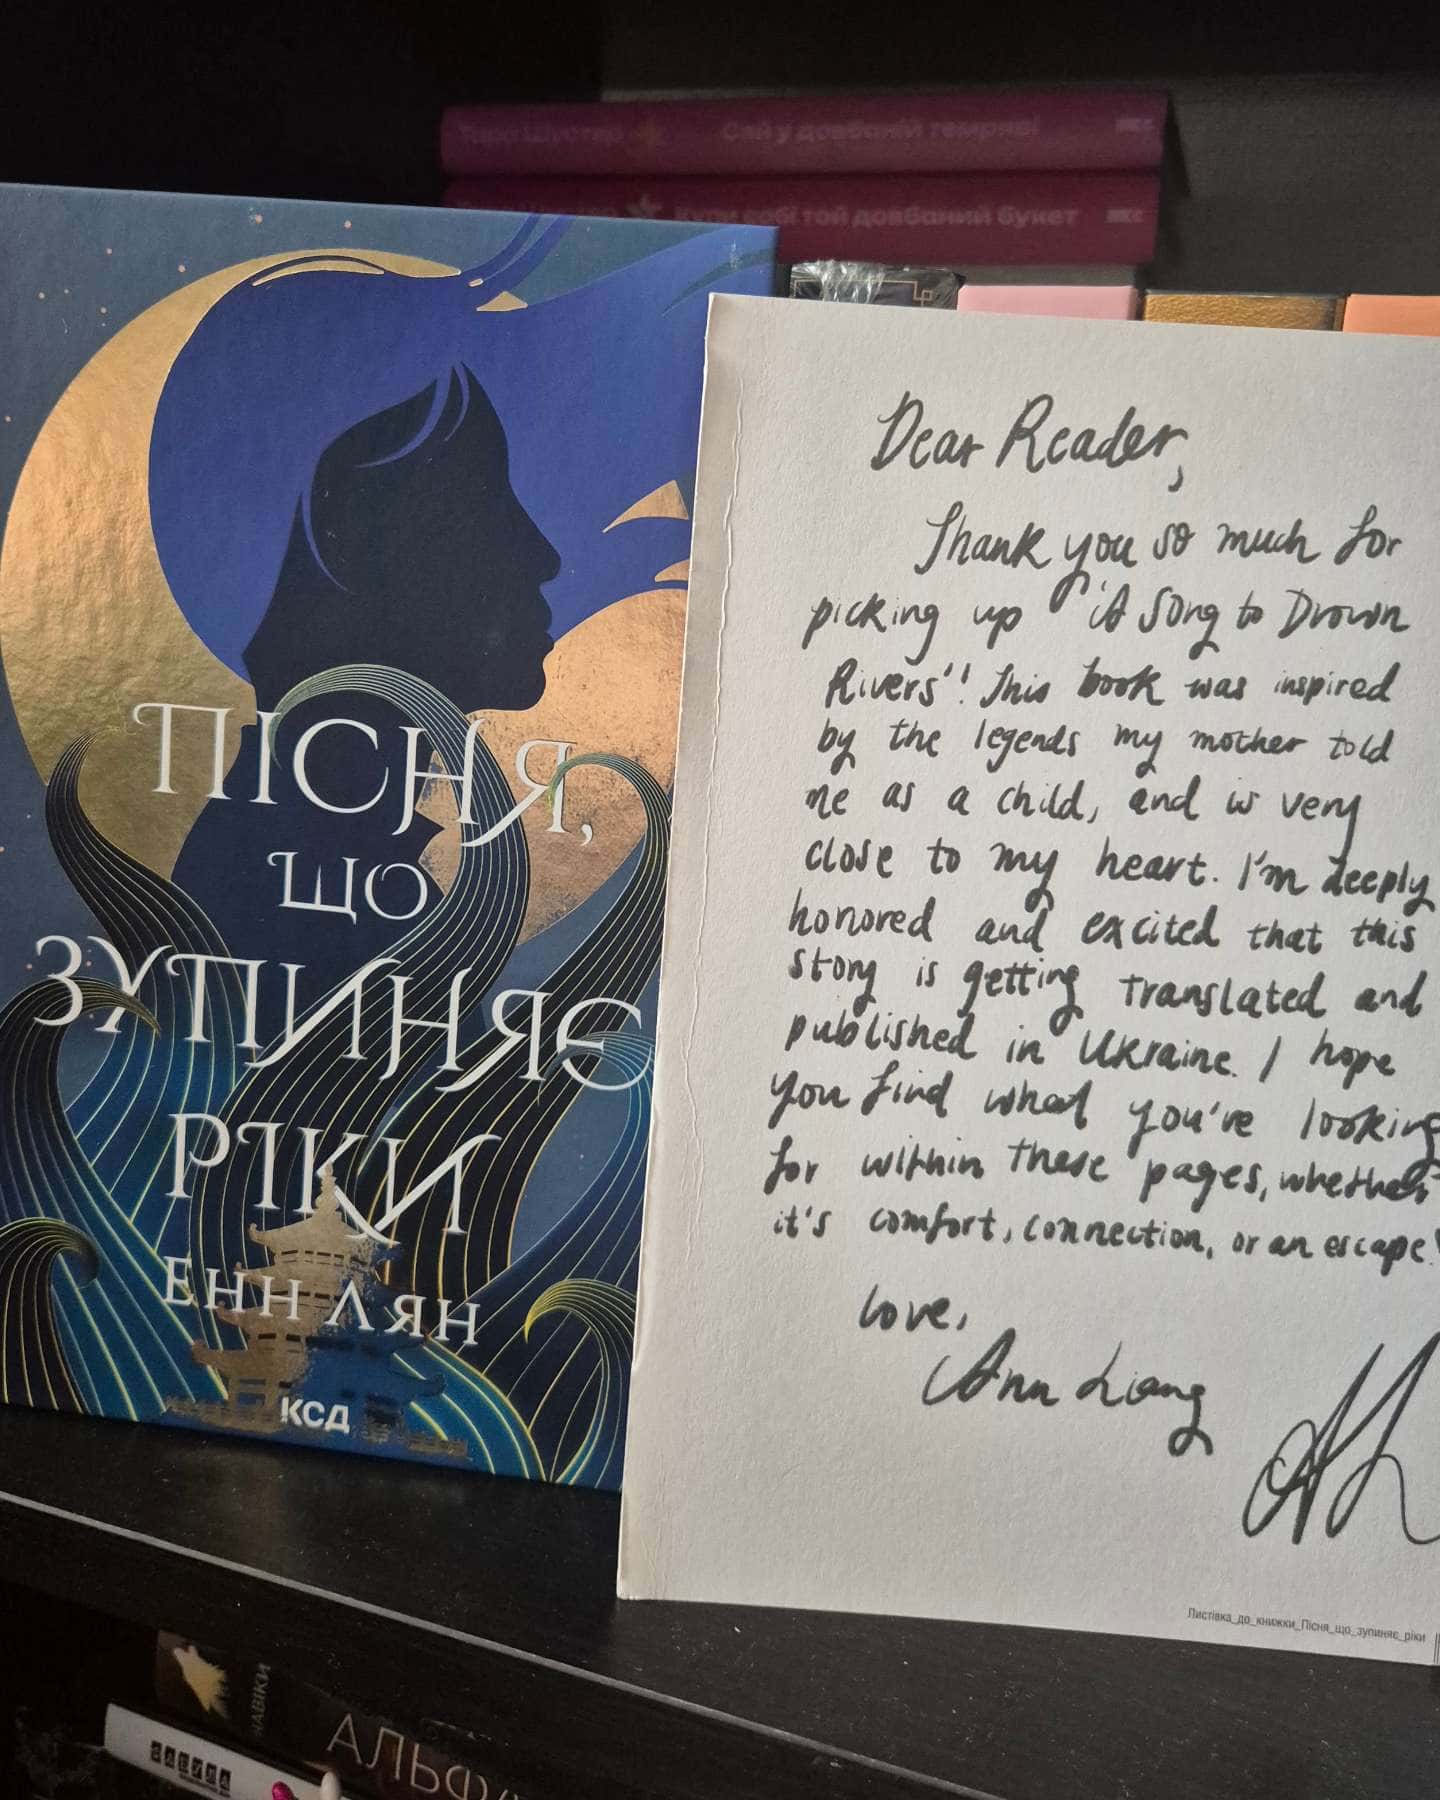 Сяй у довбаній темряві
Купи собі той довбаний букет
ПІСНЯ,
ЩО
ЗУПИНЯЄ
РІКИ
ЕНН ЛЯН
КСД
Dear Reader,
Thank you so much for
picking up "A Song to Drown
Rivers"! This book was inspired
by the legends my mother told
me as a child, and is very
close to my heart. I'm deeply
honored and excited that this
story is getting translated and
published in Ukraine. I hope
you find what you've looking
for within these pages, whether
it's comfort, connection, or an escape!
Love,
Ann Liang
Листівка_до_книжки_Пісня_що_зупиняє_ріки
НАВІКИ
АЛЬФА